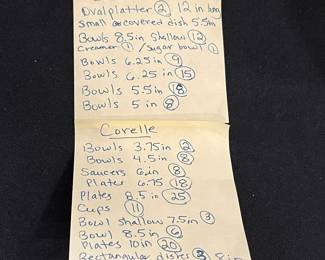 Oval platter 2 12 in long
Small covered dish 5.5 in
Bowls 8.5 in shallow 12
Creamer 1 / Sugar bowl 1
Bowls 6.25 in 9
Bowls 6.25 in 15
Bowls 5.5 in 18
Bowls 5 in 8
Corelle
Bowls 3.75 in 2
Bowls 4.5 in 8
Saucers 6 in 8
Plates 6.75 18
Plates 8.5 in 25
Cups 11
Bowl shallow 7.5 in 3
Bowl 8.5 in 6
Plates 10 in 20
Rectangular dishes 3 8 in